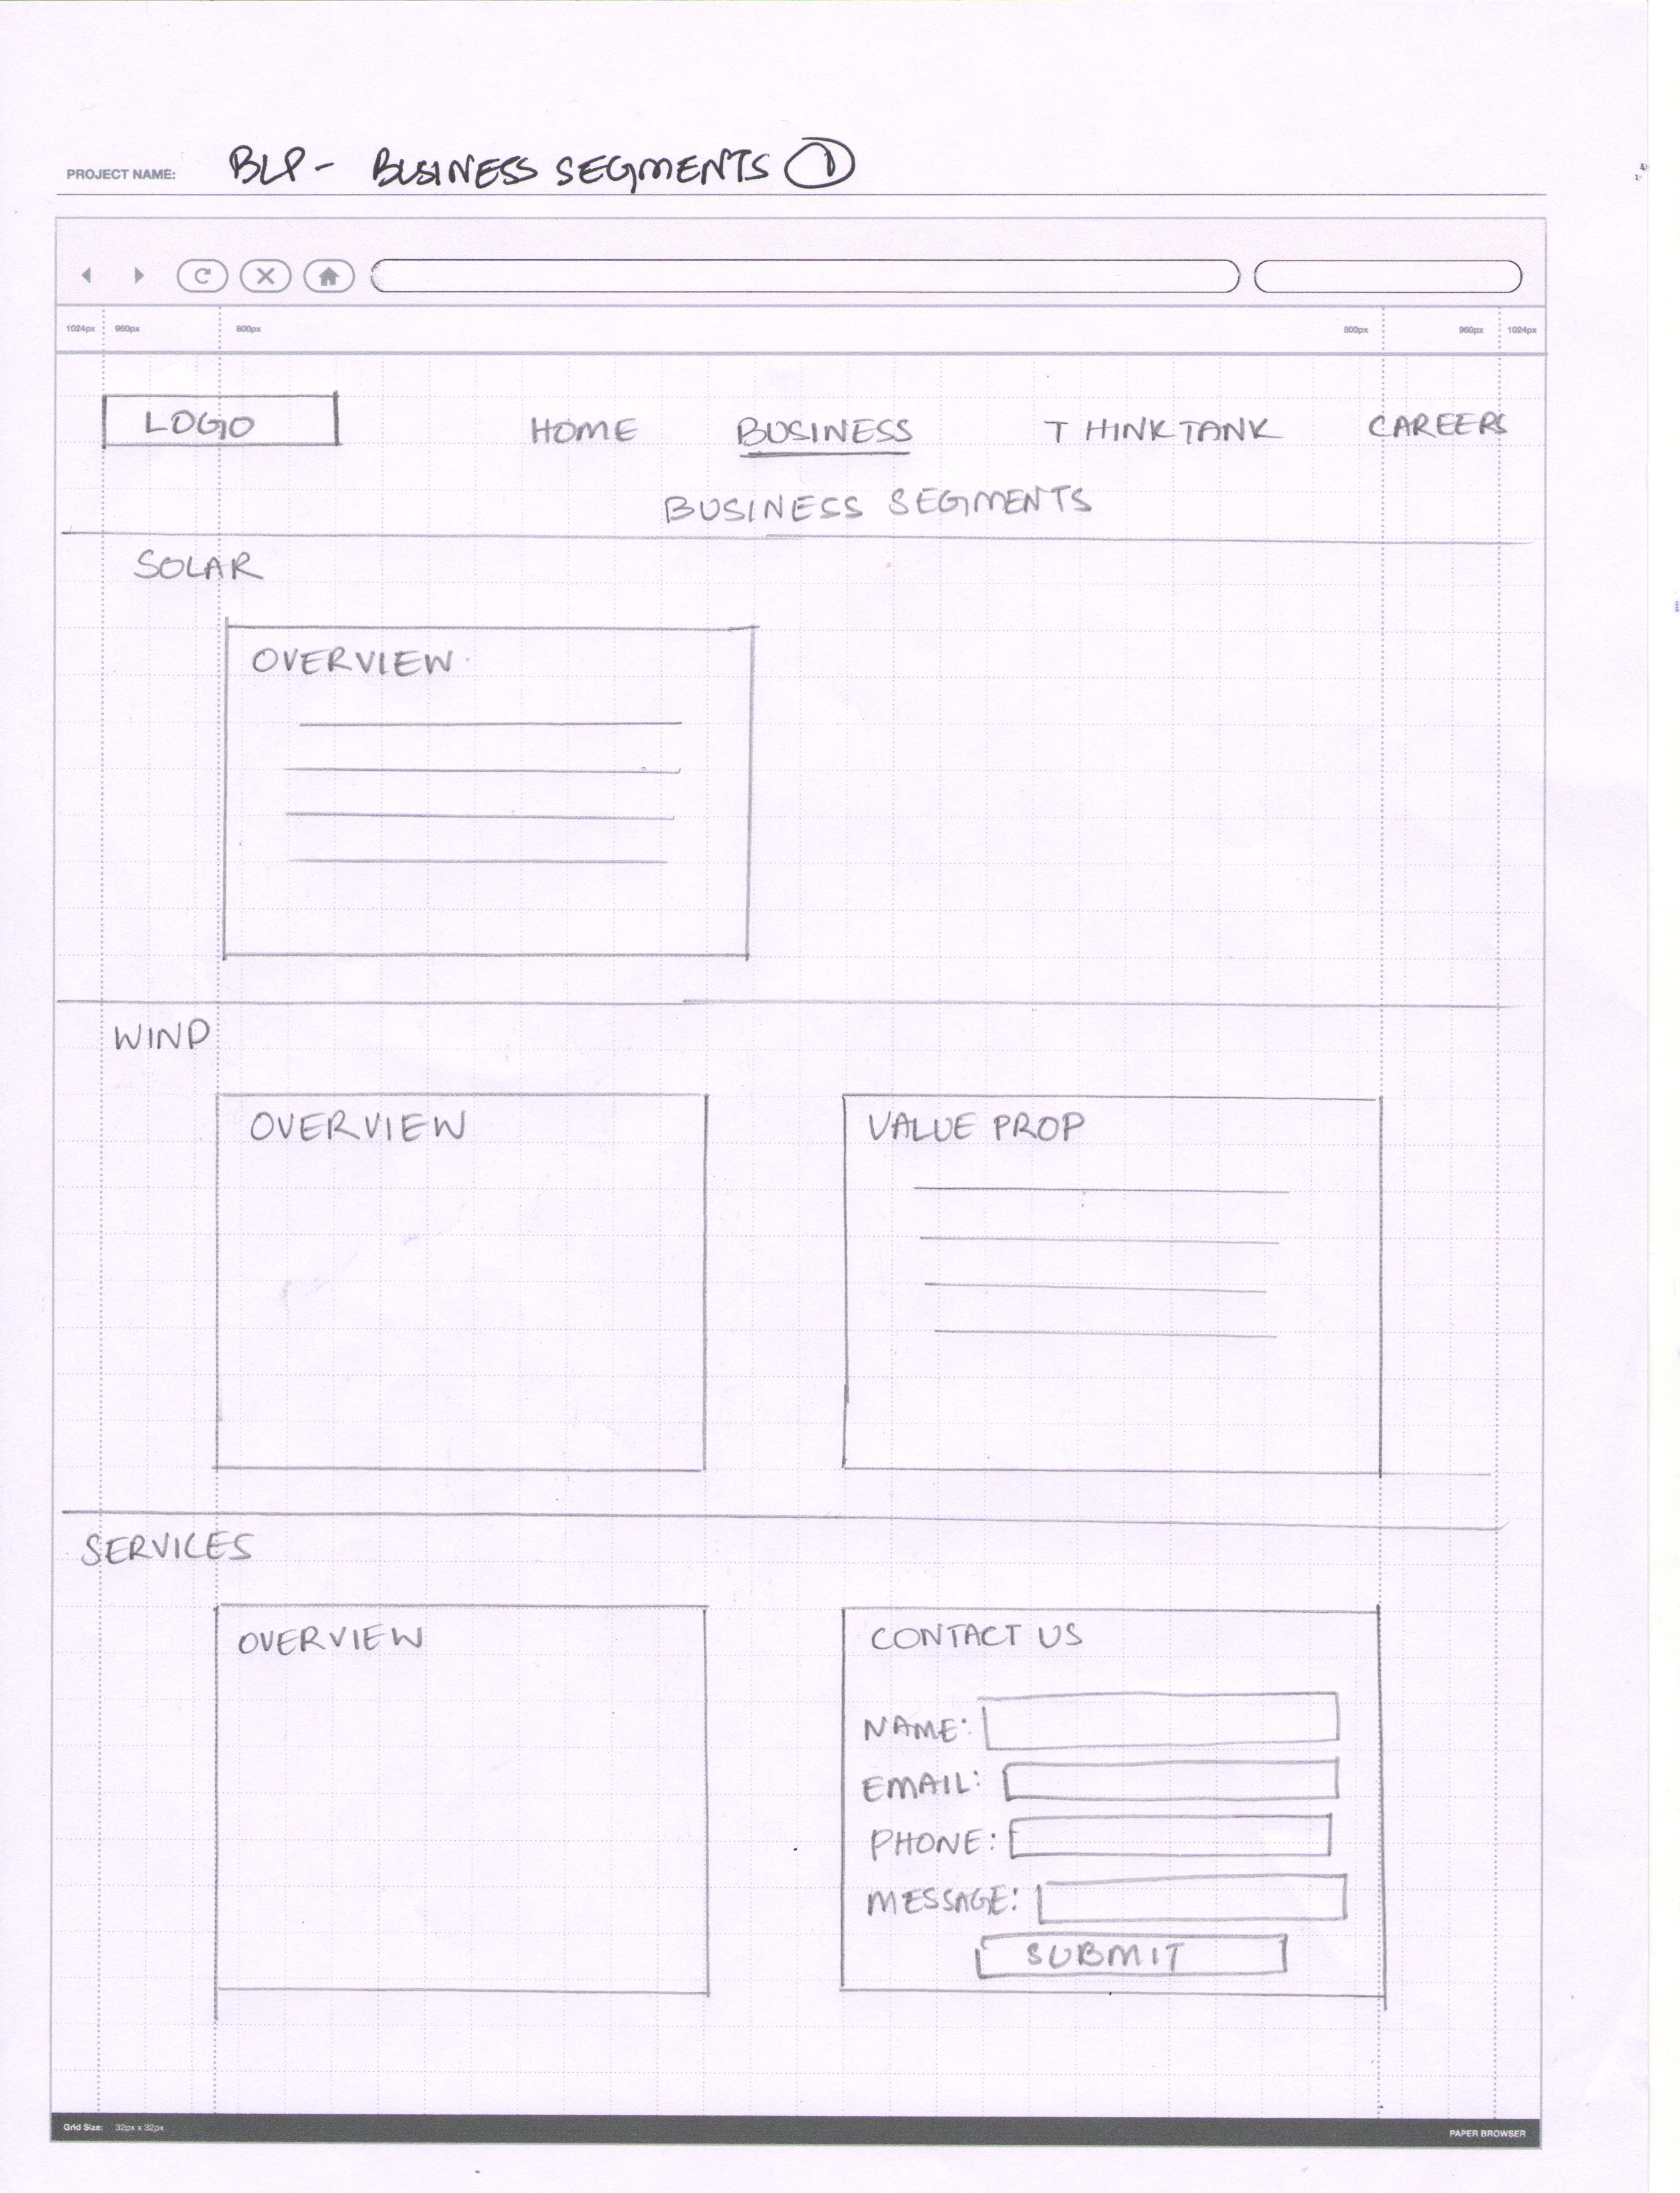 PROJECT NAME: BLP - BUSINESS SEGMENTS 1
1024px 960px 800px 800px 960px 1024px
LOGO HOME BUSINESS THINKTANK CAREERS
BUSINESS SEGMENTS
SOLAR
OVERVIEW
WIND
OVERVIEW VALUE PROP
SERVICES
OVERVIEW CONTACT US
NAME:
EMAIL:
PHONE:
MESSAGE:
SUBMIT
Grid Size: 32px x 32px PAPER BROWSER